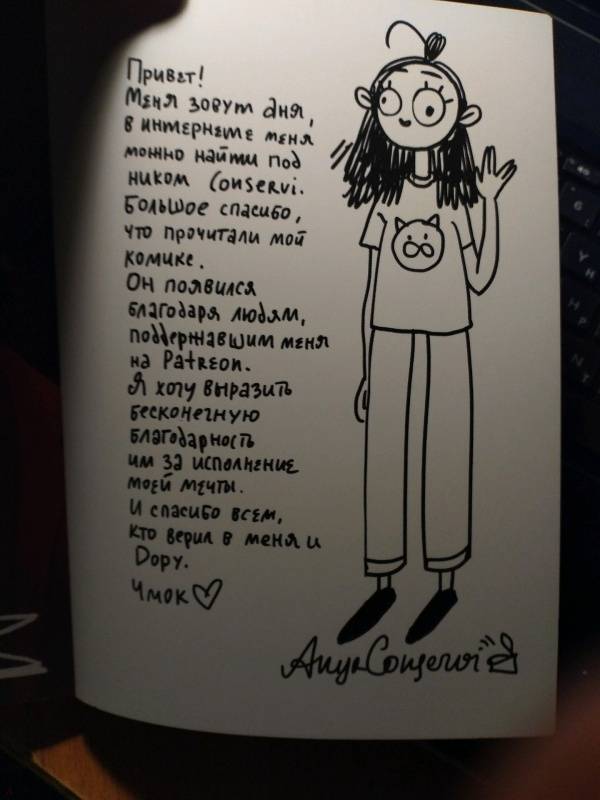 Привет!
Меня зовут Аня,
в интернете меня
можно найти под
ником Conservi.
Большое спасибо,
что прочитали мой
комикс.
Он появился
благодаря людям,
поддержавшим меня
на Patreon.
Я хочу выразить
бесконечную
благодарность
им за исполнение
моей мечты.
И спасибо всем,
кто верил в меня и
Дору.
Чмок
Anya Conservi